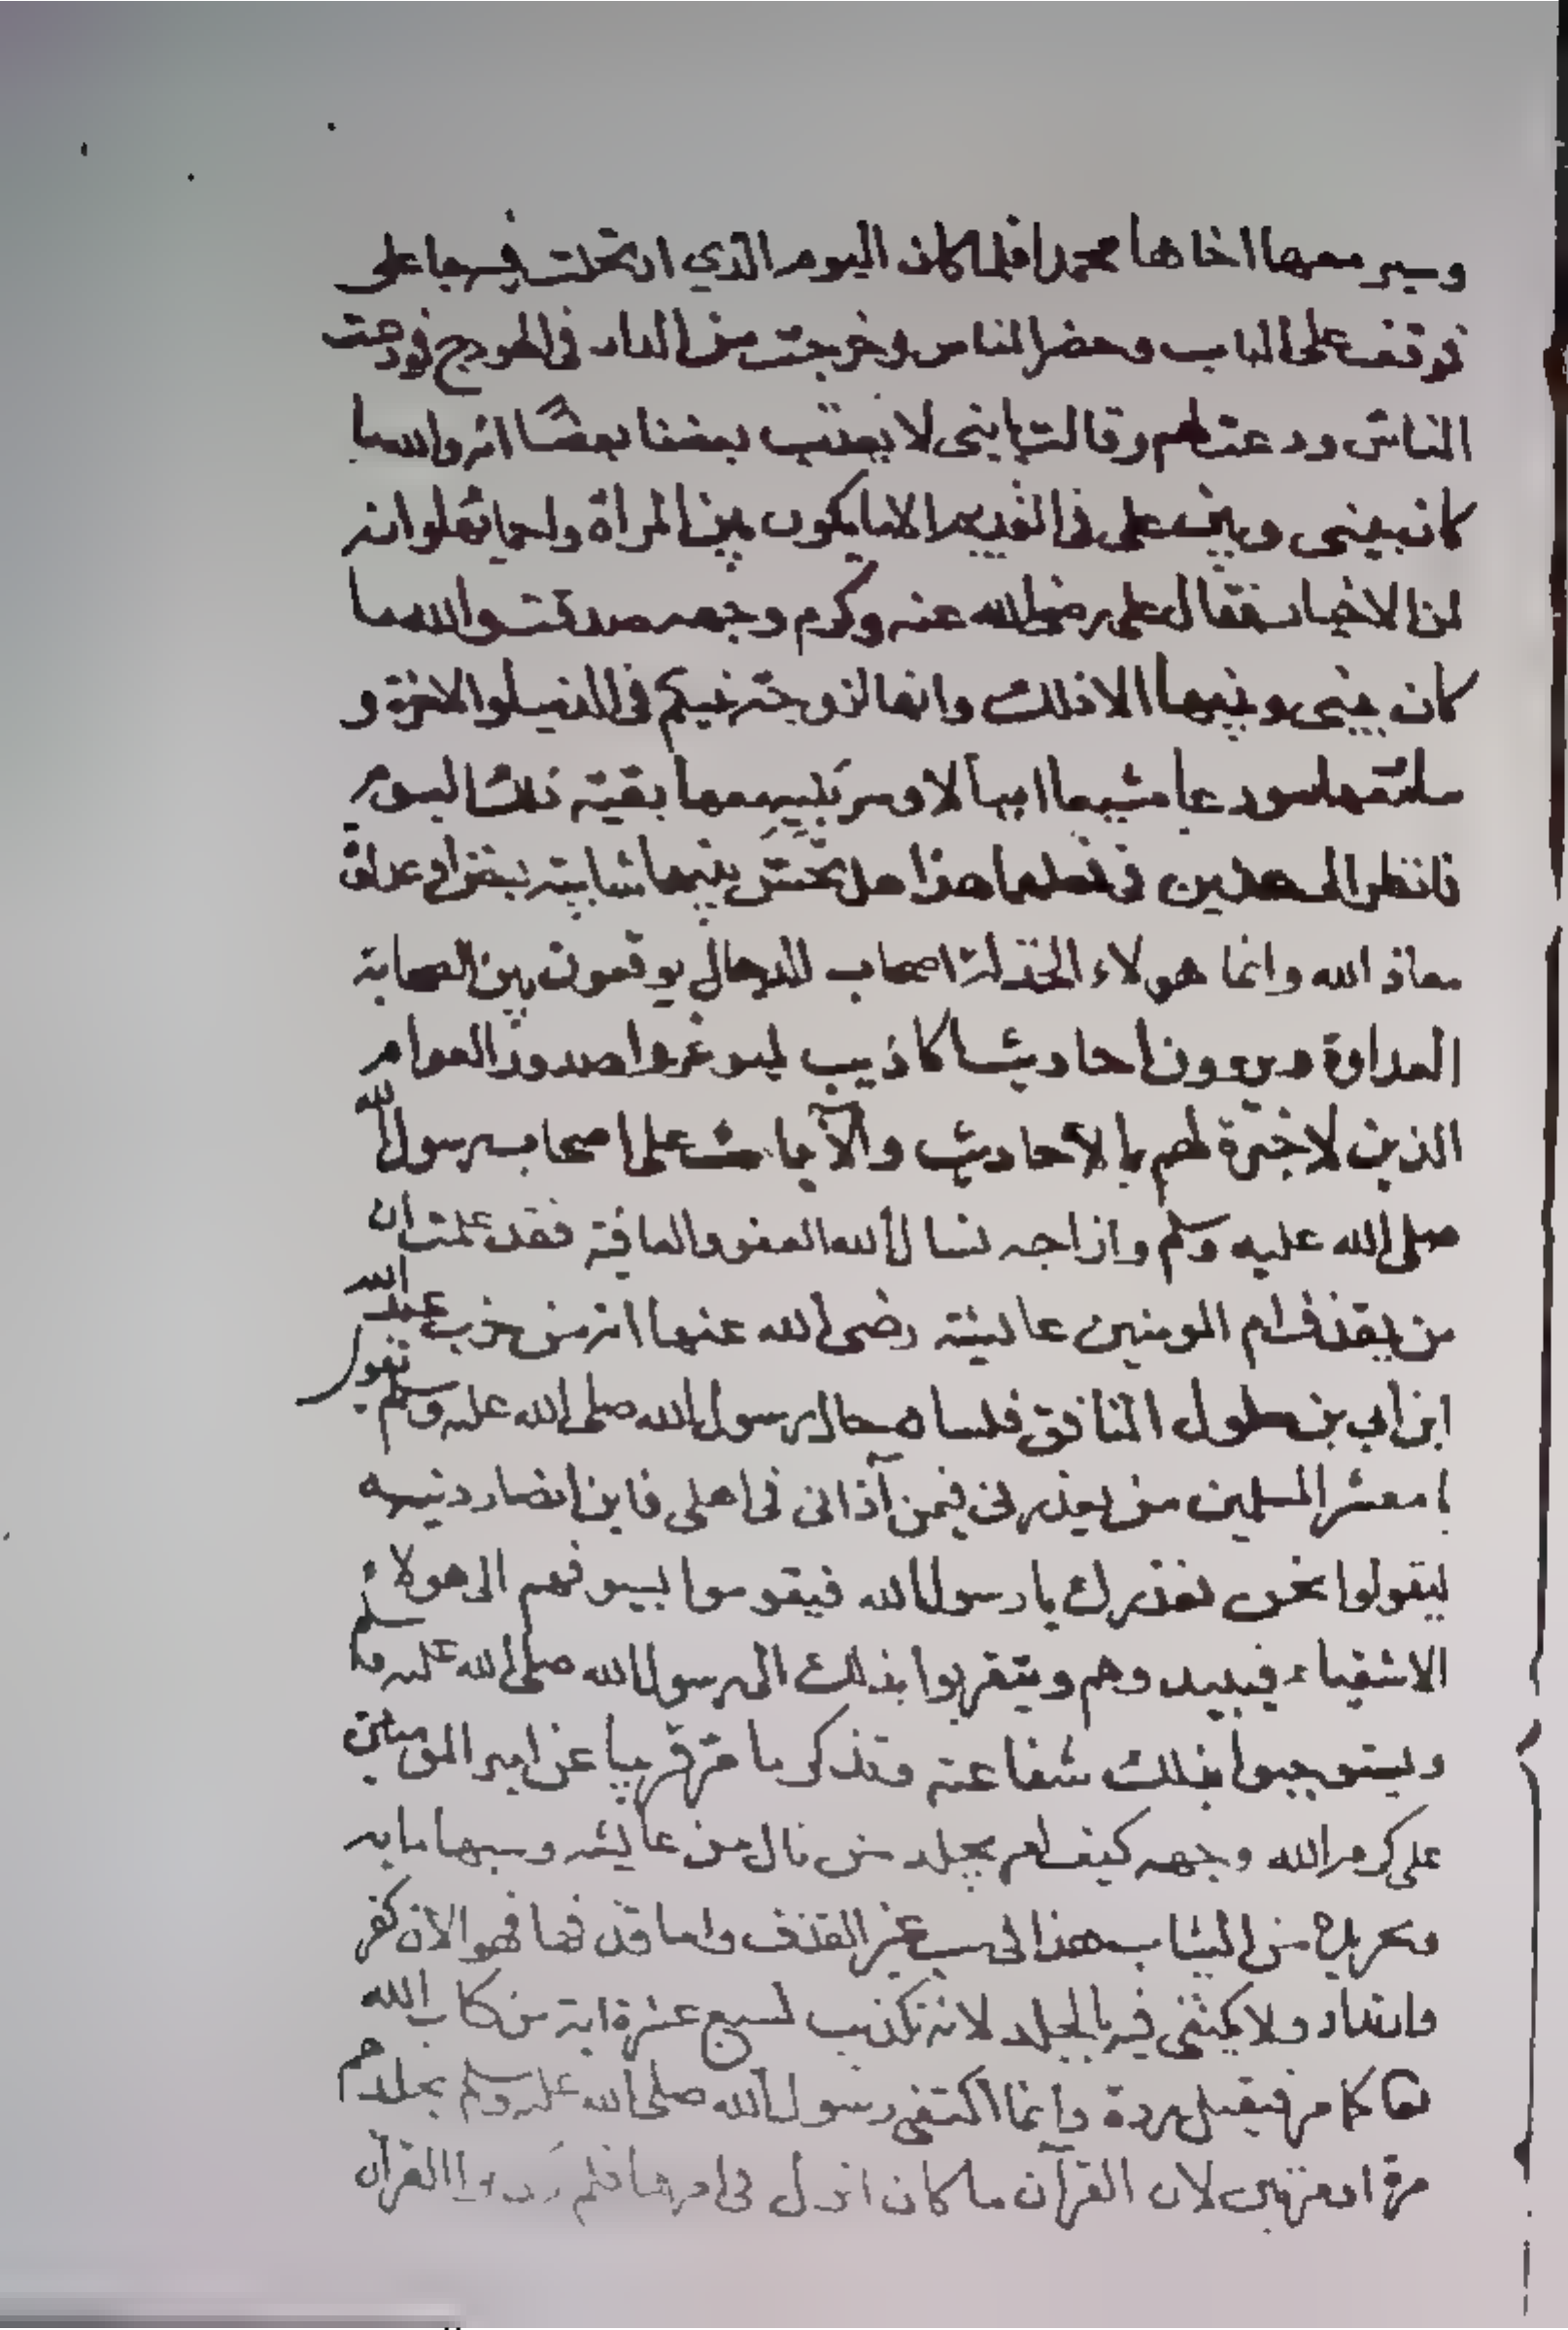 وسير معها اخاها محمدا فلما كان اليوم الذي ارتحلت فيه جا على
فوقف على الباب وحضر الناس وخرجت من الدار في الهودج فودعت
الناس ودعت لهم وقالت يا بنى لا يعتب بعضنا بعضًا انه والله ما
كان بينى وبين على في القديم الا ما يكون بين المراة واحمائها وانه
لمن الاخيار فقال على رضي الله عنه وكرم وجهه صدقت والله ما
كان بينى وبينها الا ذلك وانها لزوجة نبيكم في الدنيا والاخرة و
سار معها مودعا مشيعا اميالا وسرّ بنيه معها بقية ذلك اليوم
فانظر الى هذين في فعلهما هذا هل تحسّ بينهما شايبة بغض او عداوة
معاذ الله وانما هولاء الخذلة اصحاب الدجال يوقعون بين الصحابة
العداوة ويروون احاديث اكاذيب ليوغروا صدور العوام
الذين لا خبرة لهم بالأحاديث والآيات على اصحاب رسول الله
صلى الله عليه وسلم وازاجه نسال الله العفو والعافية فقد علمت ان
من يقذف ام المومنين عايشة رضى الله عنها انه من حزب عبد الله
ابن ابي بن سلول المنافق فلسان حال رسول الله صلى الله عليه وسلم يقول
يا معشر المسلمين من يعذرنى فيمن آذانى في اهلى فاين انصار دنيه
ليقولوا نحن نعذرك يا رسول الله فيقوموا بسيوفهم الى هولاء
الاشقياء فيبيدوهم ويتقربوا بذلك الى رسول الله صلى الله عليه وسلم
ويستوجبوا بذلك شفاعته وتذكر ما مرّ قريبا عن امير المومنين
على كرم الله وجهه كيف امر بجلد من نال من عايشه وسبها ماية
ومن الثياب هذا في سب غير القذف واما قذفها فهو الان كفر
وارتداد ولا يكتفى فيه بالجلد لانه تكذيب لسبع عشرة اية من كتاب الله
كما مر فيقتل ردة وانما اكتفى رسول الله صلى الله عليه وسلم بجلدهم
مرة او مرتين لان القرآن ما كان انزل في امرها فلم القرآن